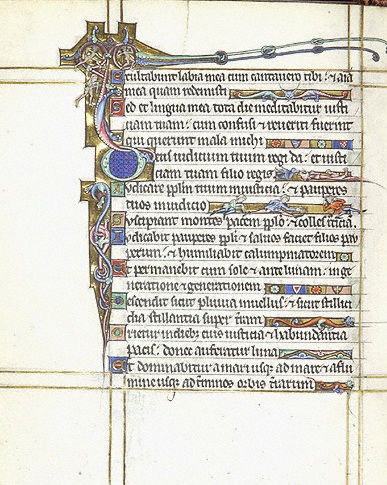 Exultabunt labia mea cum cantavero tibi: & aīa
mea quam redemisti
Sed et lingua mea tota die meditabitur iusti
ciam tuam: cum confusi & reveriti fuerint
qui querunt mala michi
Deus iudicium tuum regi da: et iusti
ciam tuam filio regis
Iudicare pplm tuum in iusticia: & pauperes
tuos in iudicio
Suscipiant montes pacem pplo: & colles
Iudicabit pauperes ppli & salvos faciet filios pau
perum: & humiliabit calumpniatorem
Et permanebit cum sole & ante lunam: in ge
neratione & generationem
Descendit sicut pluvia in vellus: & sicut stillici
dia stillantia super
Orietur in diebus eius iusticia & habundantia
pacis: donec auferatur luna
Et dominabitur a mari usque ad mare & a flu
mine usque ad orbis